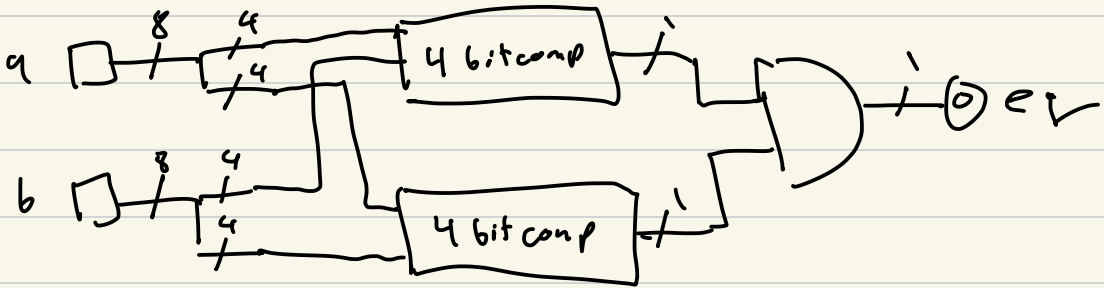 a 8 4 4 bit comp 1 1 eq
4
b 8 4 4 bit comp 1
4